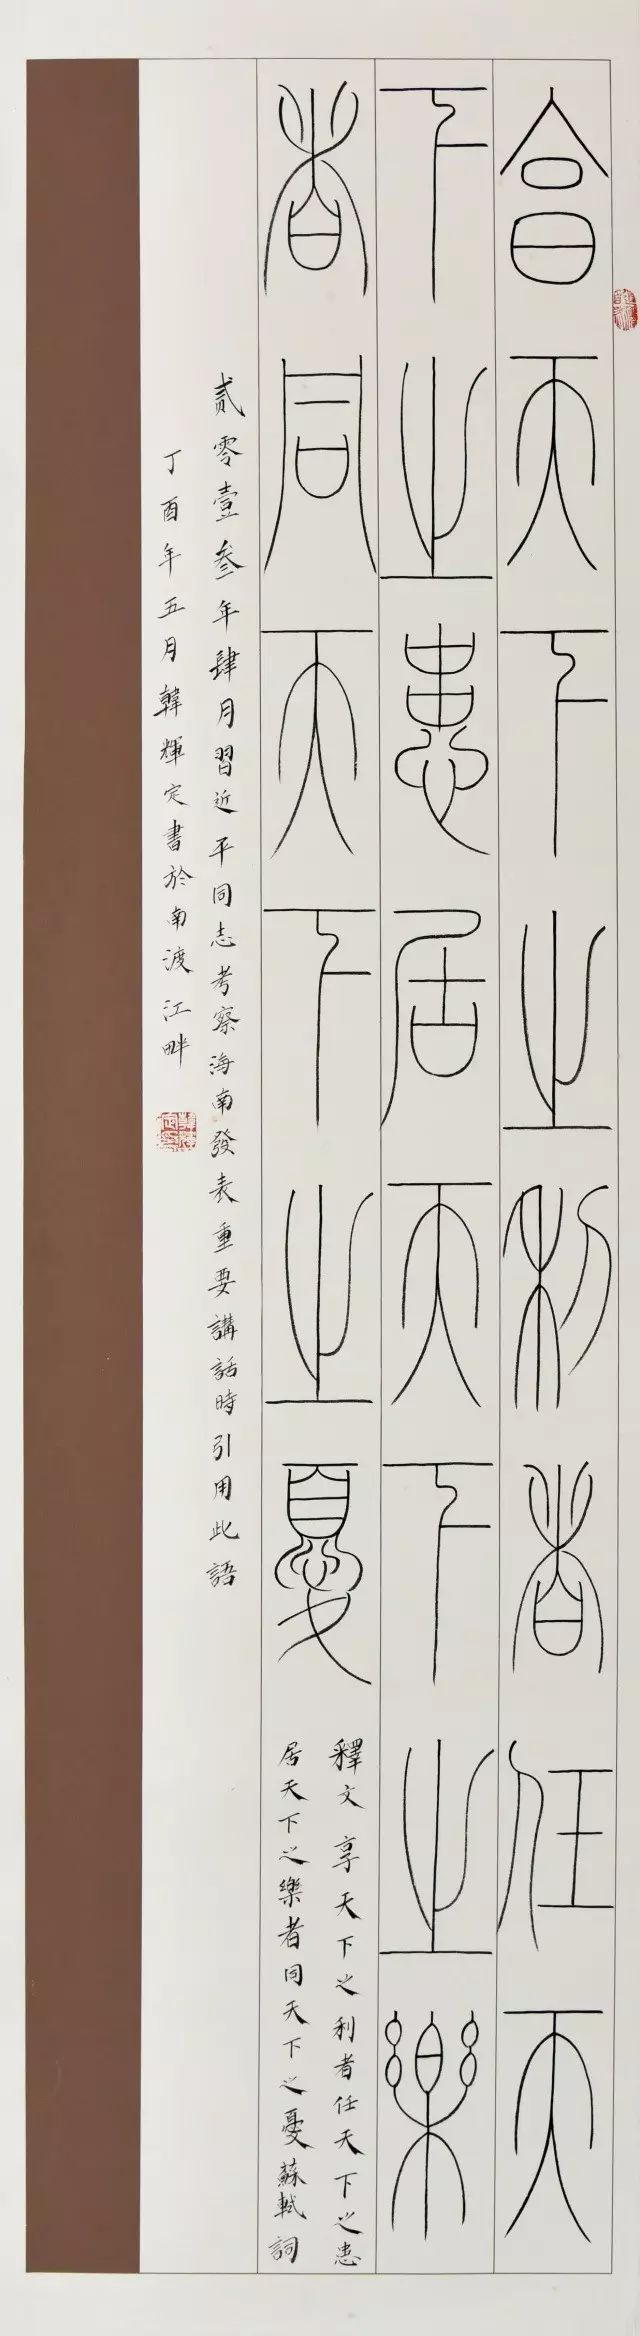 亯天下之利者任天
下之患居天下之樂
者同天下之憂
釋文享天下之利者任天下之患
居天下之樂者同天下之憂蘇軾詞
贰零壹叁年肆月習近平同志考察海南發表重要講話時引用此語
丁酉年五月韓輝定書於南渡江畔